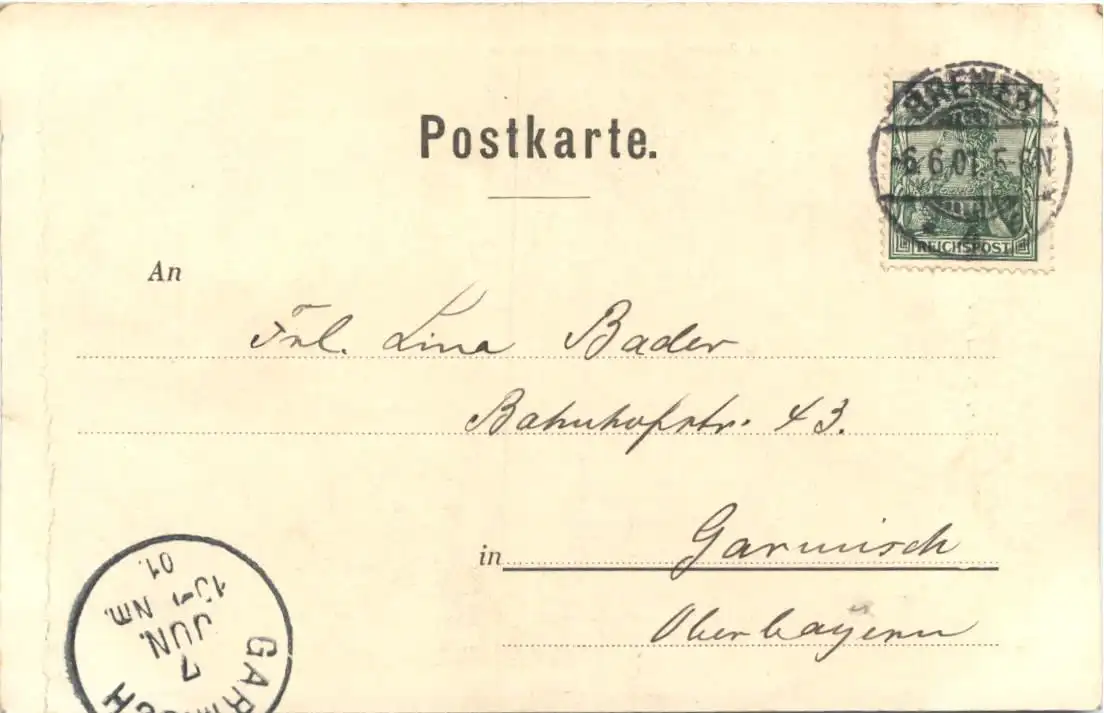 Postkarte.
BREMEN
6.6.01. 5-6N
REICHSPOST
An
Frl. Lina Bader
Bahnhofstr. 43.
in Garmisch
Oberbayern
GARMISCH
7
JUN.
Nm.
01.